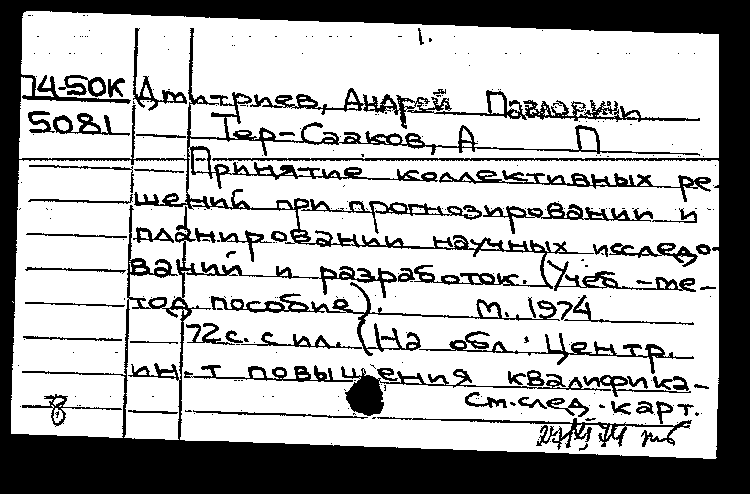 1.
74-50К Дмитриев, Андрей Павлович
5081 Тер-Сааков, А П
Принятие коллективных ре-
шений при прогнозировании и
планировании научных исследо-
ваний и разработок. (Учеб-ме-
тод. пособие). М., 1974.
72с. с ил. (На обл.: Центр.
ин-т повышения квалифика-
См. след. карт.